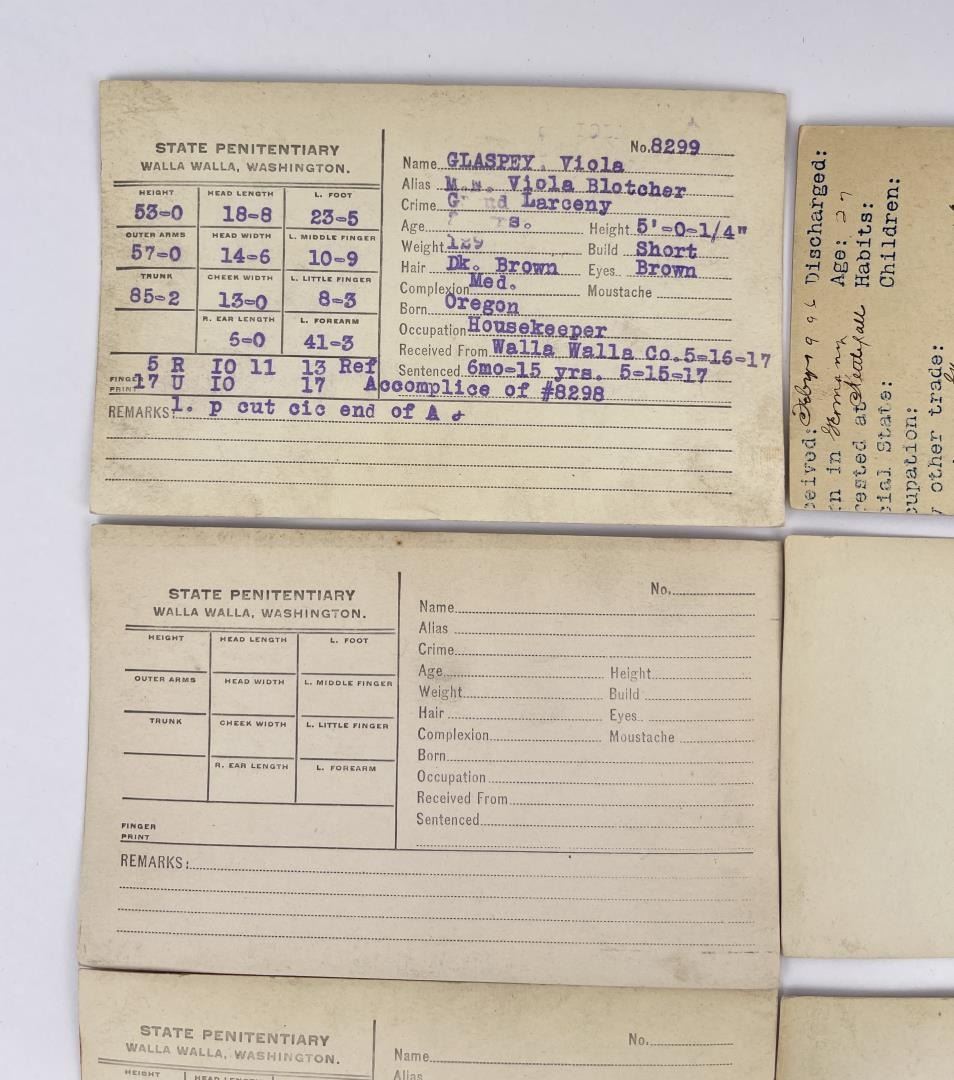 STATE PENITENTIARY
WALLA WALLA, WASHINGTON.
HEIGHT HEAD LENGTH L. FOOT
53=0 18=8 23=5
OUTER ARMS HEAD WIDTH L. MIDDLE FINGER
57=0 14=6 10=9
TRUNK CHEEK WIDTH L. LITTLE FINGER
85=2 13=0 8=3
R. EAR LENGTH L. FOREARM
6=0 41=3
5 R IO 11 13 Ref
FINGER PRINT 17 U IO 17 Accomplice of #8298
No. 8299
Name GLASPEY, Viola
Alias Viola Blotcher
Crime Larceny
Age Height 5'=0=1/4"
Weight 129 Build Short
Hair Dk. Brown Eyes Brown
Complexion Med. Moustache
Born Oregon
Occupation Housekeeper
Received From Walla Walla Co. 5=16=17
Sentenced 6mo=15 yrs. 5=15=17
REMARKS: l. p cut cic end of A
STATE PENITENTIARY
WALLA WALLA, WASHINGTON.
HEIGHT HEAD LENGTH L. FOOT
OUTER ARMS HEAD WIDTH L. MIDDLE FINGER
TRUNK CHEEK WIDTH L. LITTLE FINGER
R. EAR LENGTH L. FOREARM
FINGER
PRINT
No.
Name
Alias
Crime
Age Height
Weight Build
Hair Eyes
Complexion Moustache
Born
Occupation
Received From
Sentenced
REMARKS:
STATE PENITENTIARY
WALLA WALLA, WASHINGTON.
HEIGHT HEAD LENGTH
No.
Name
Alias
eived: Discharged:
n in Germany Age: 27
ested at Habits:
ial State: Children:
upation:
other trade: